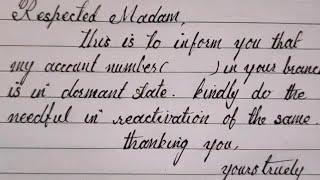 Respected Madam,
This is to inform you that
my account number(        ) in your branc
is in dormant state. kindly do the
needful in reactivation of the same.
thanking you,
yours truely